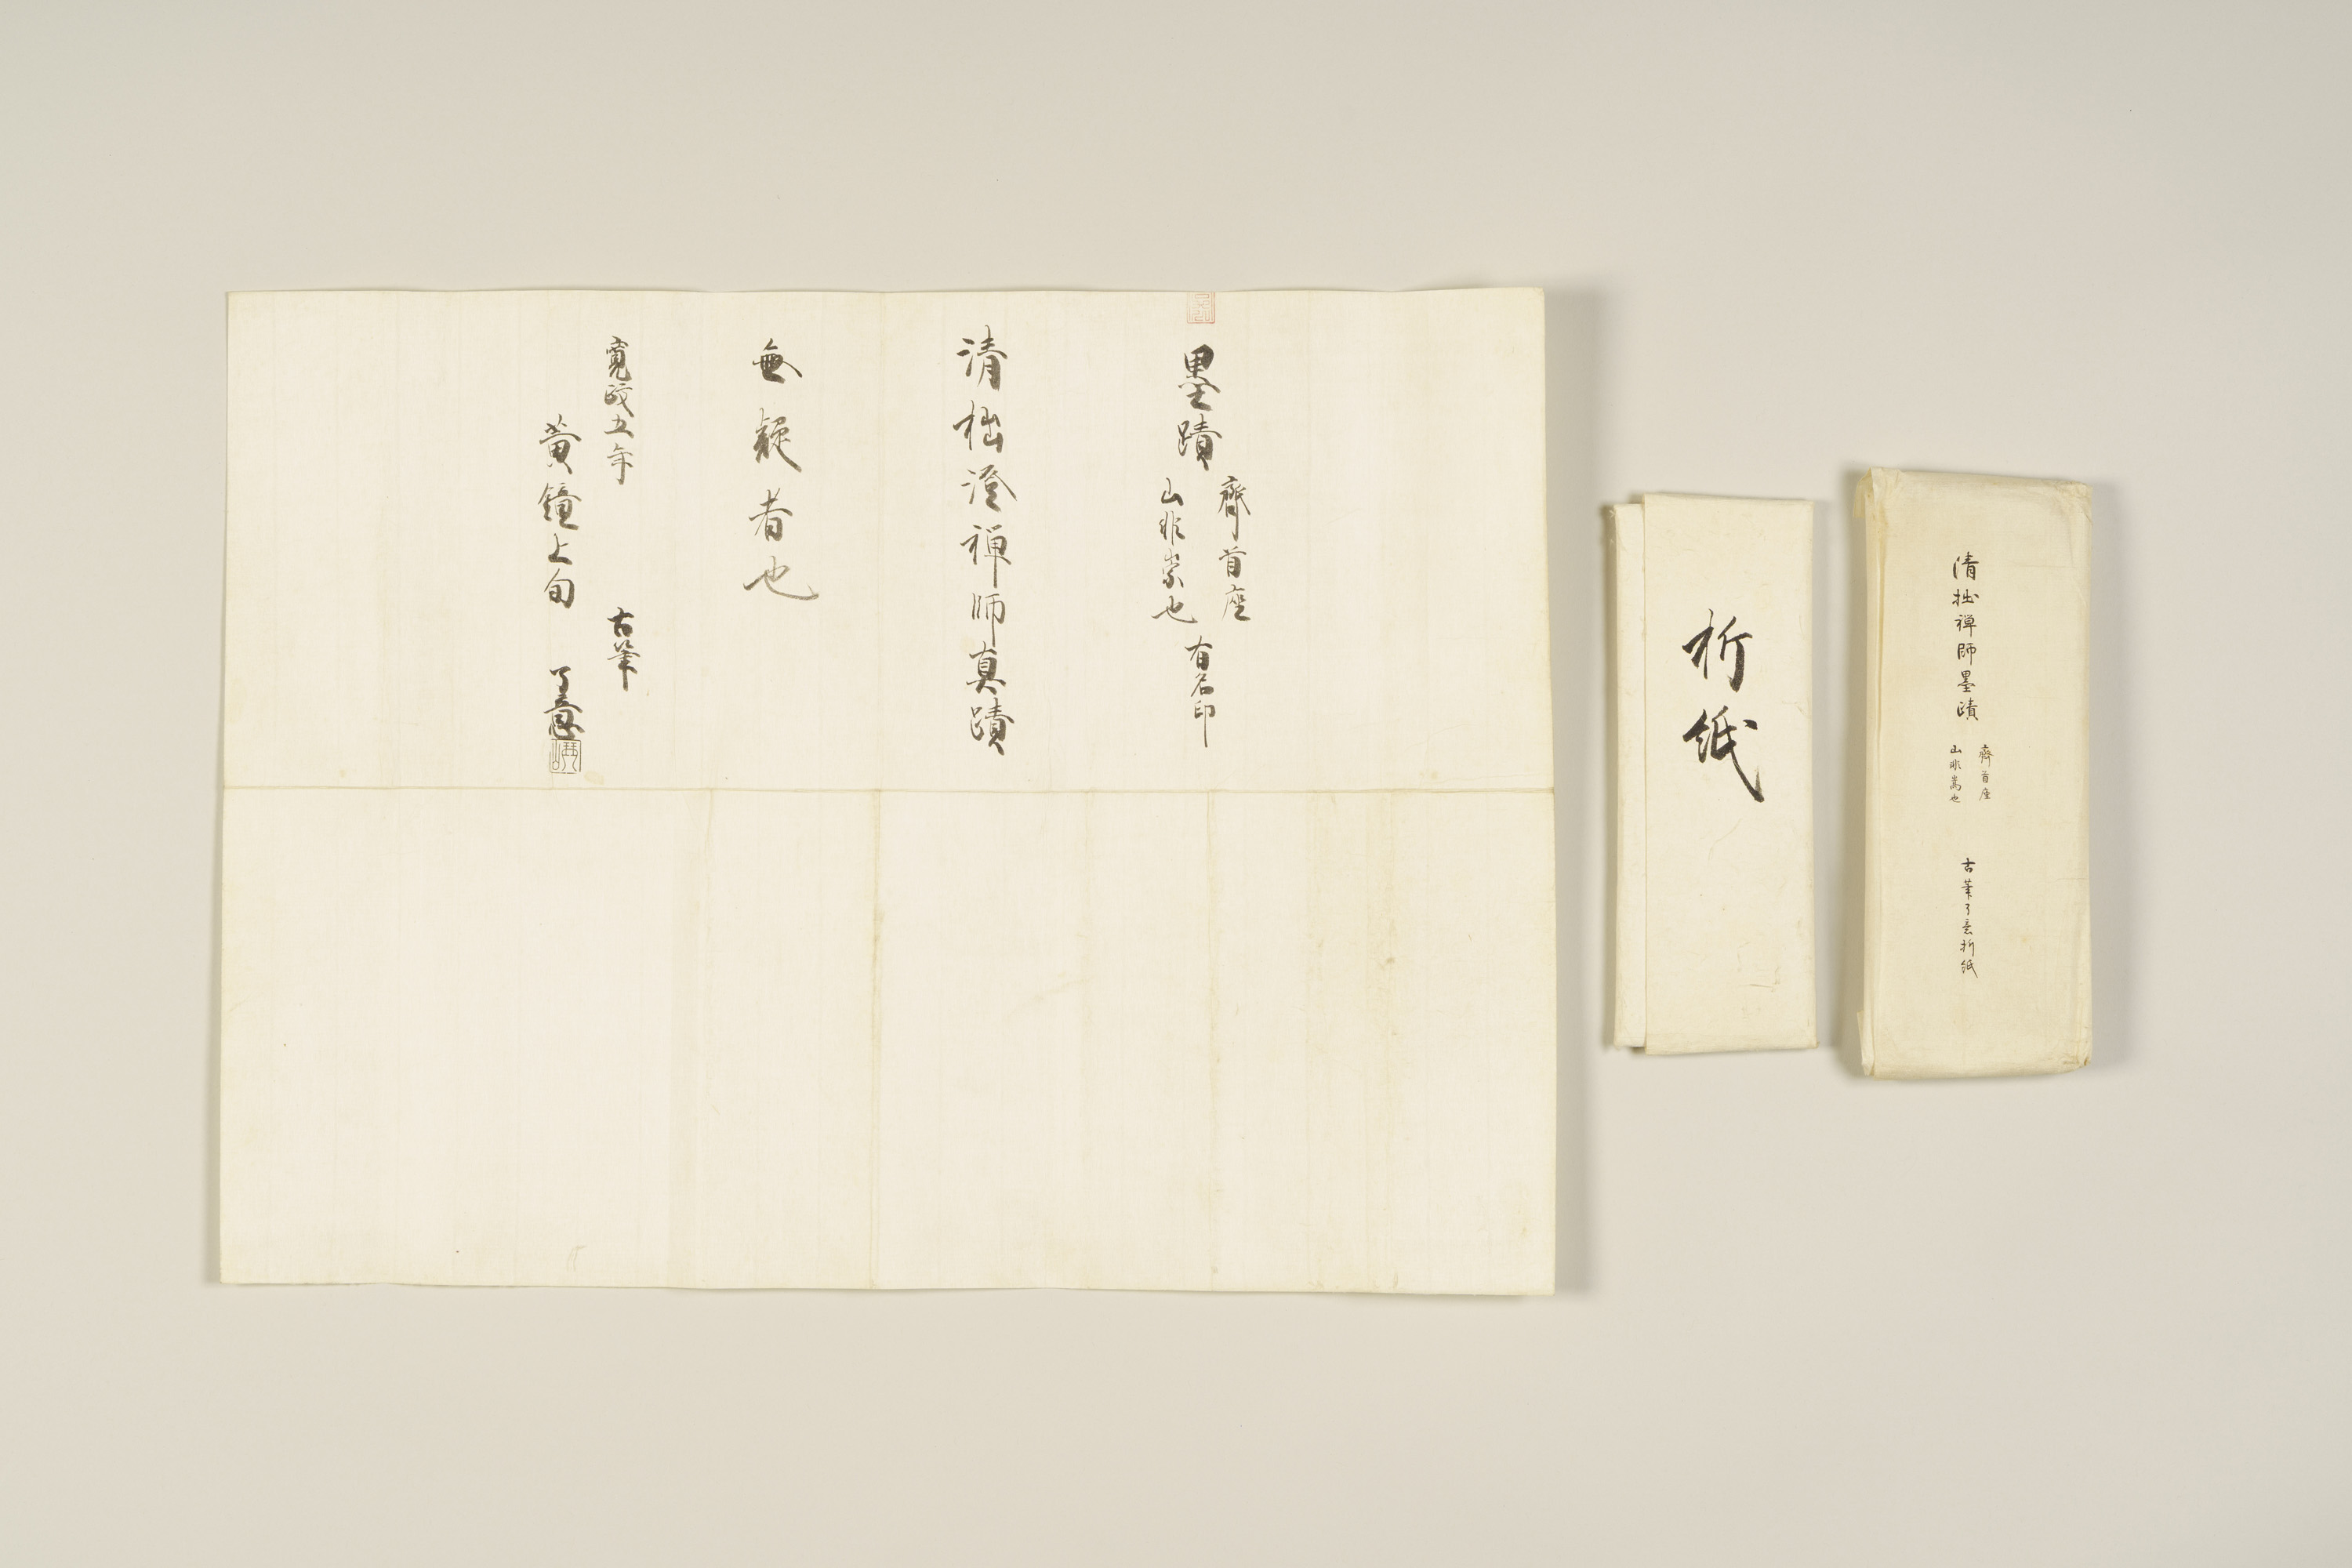 墨蹟
齊首座
山非崇也
有名印
清拙澄禅師真蹟
無疑者也
寛政五年
古筆
黄鐘上旬
了意
折紙
清拙禅師墨蹟
齊首座
山非嵩也
古筆了意折紙